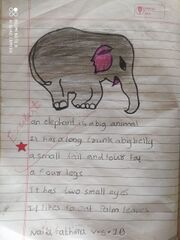 an elephant is a big animal
It has a long trunk a big belly
a small tail and four
a four legs
It has two small eyes
It likes to eat Palm leaves
Naila Fathima V